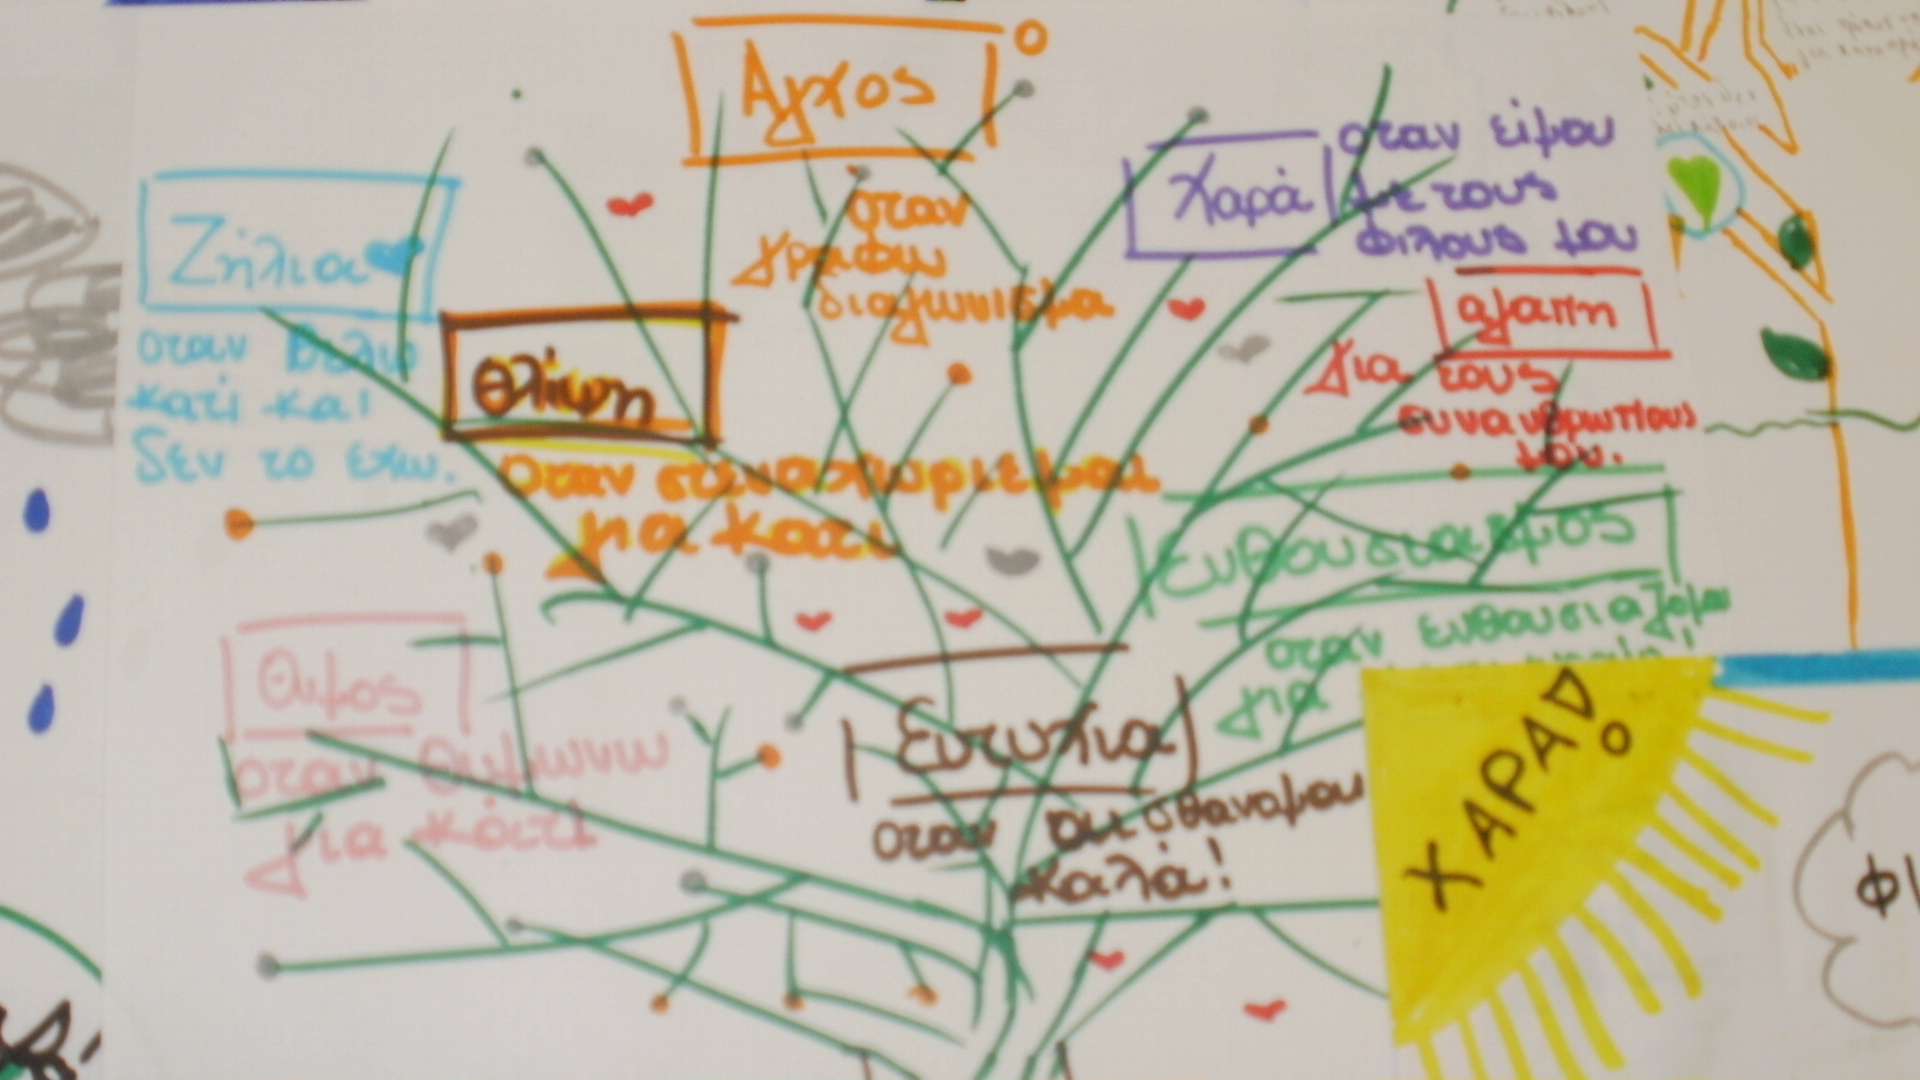 Αγχος
οταν
γραφω
διαγωνισμα
Χαρά
οταν είμαι
με τους
φιλους μου
Ζήλια
οταν θελω
κατί και
δεν το εχω.
Θλίψη
οταν στεναχωριεμαι
για κατι
αγαπη
για τους
συνανθρωπους
μου.
Ενθουσιασμος
οταν ενθουσιαζομαι
για
Θυμος
οταν θυμωνω
για κάτι
Ευτυχια
οταν αισθαναμαι
καλά!
ΧΑΡΑ!